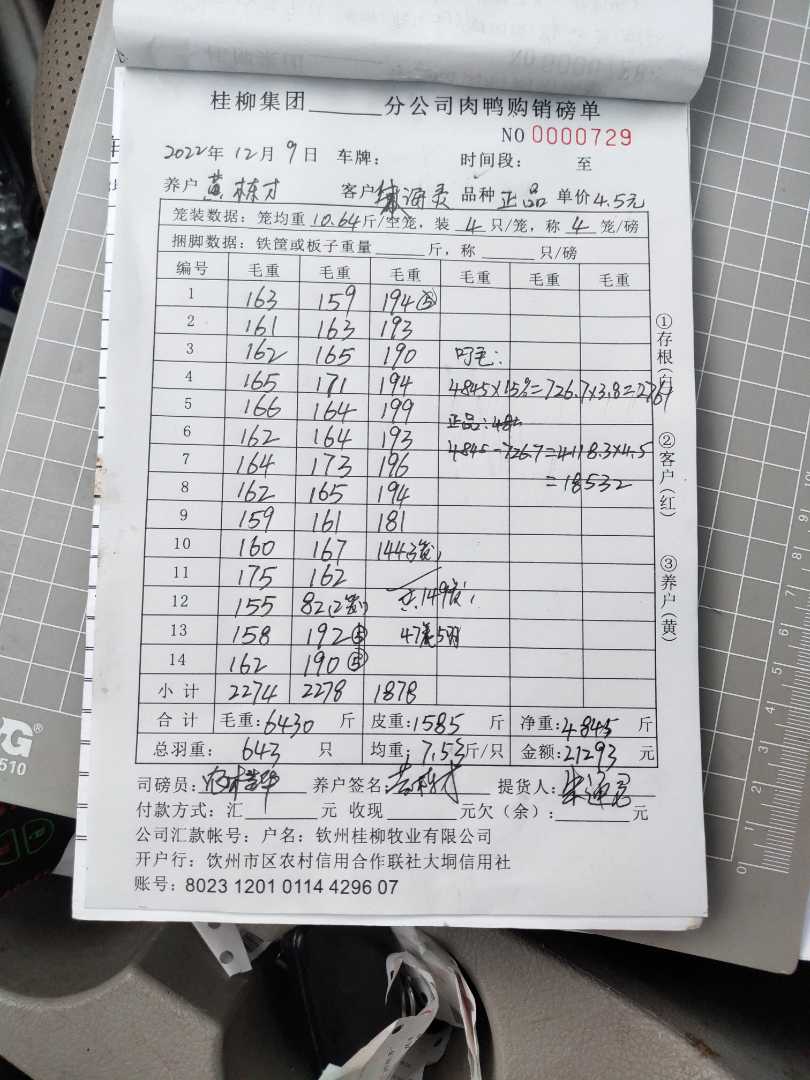 桂柳集团______分公司肉鸭购销磅单
NO 0000729
2022年 12月 9日 车牌： 时间段： 至
养户 黄栋才 客户 品种 正品 单价 4.5元
笼装数据：笼均重 10.64 斤/空笼，装 4 只/笼，称 4 笼/磅
捆脚数据：铁筐或板子重量______斤，称______只/磅
编号 毛重 毛重 毛重 毛重 毛重 毛重
1 163 159 194⑤
2 161 163 193
3 162 165 190
4 165 171 194 4845×15%=726.7×3.8=2761
5 166 164 199 正品：
6 162 164 193 4845-726.7=4118.3×4.5
7 164 173 196
=18532
8 162 165 194
9 159 161 181
10 160 167 144
11 175 162
12 155 82 149
13 158 192 47
14 162 190⑤
小计 2274 2278 1878
合计 毛重：6430 斤 皮重：1585 斤 净重：4845 斤
总羽重： 643 只 均重：7.53 斤/只 金额：21293 元
司磅员： 养户签名： 提货人：
付款方式：汇______元 收现______元欠（余）：______元
公司汇款帐号：户名：钦州桂柳牧业有限公司
开户行：饮州市区农村信用合作联社大垌信用社
账号：8023 1201 0114 4296 07
①存根（白）
②客户（红）
③养户（黄）
®
510
0 1 2 3 4 5 6 7 8 9 10